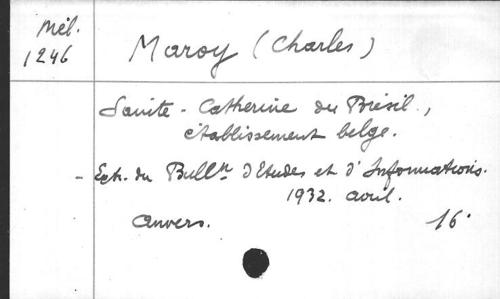 Mél.
1246
Maroy (Charles)
Sainte-Catherine du Brésil,
établissement belge.
- Extr. du Bull^in d'Etudes et d'Informations.
1932. avril.
Anvers.
16°